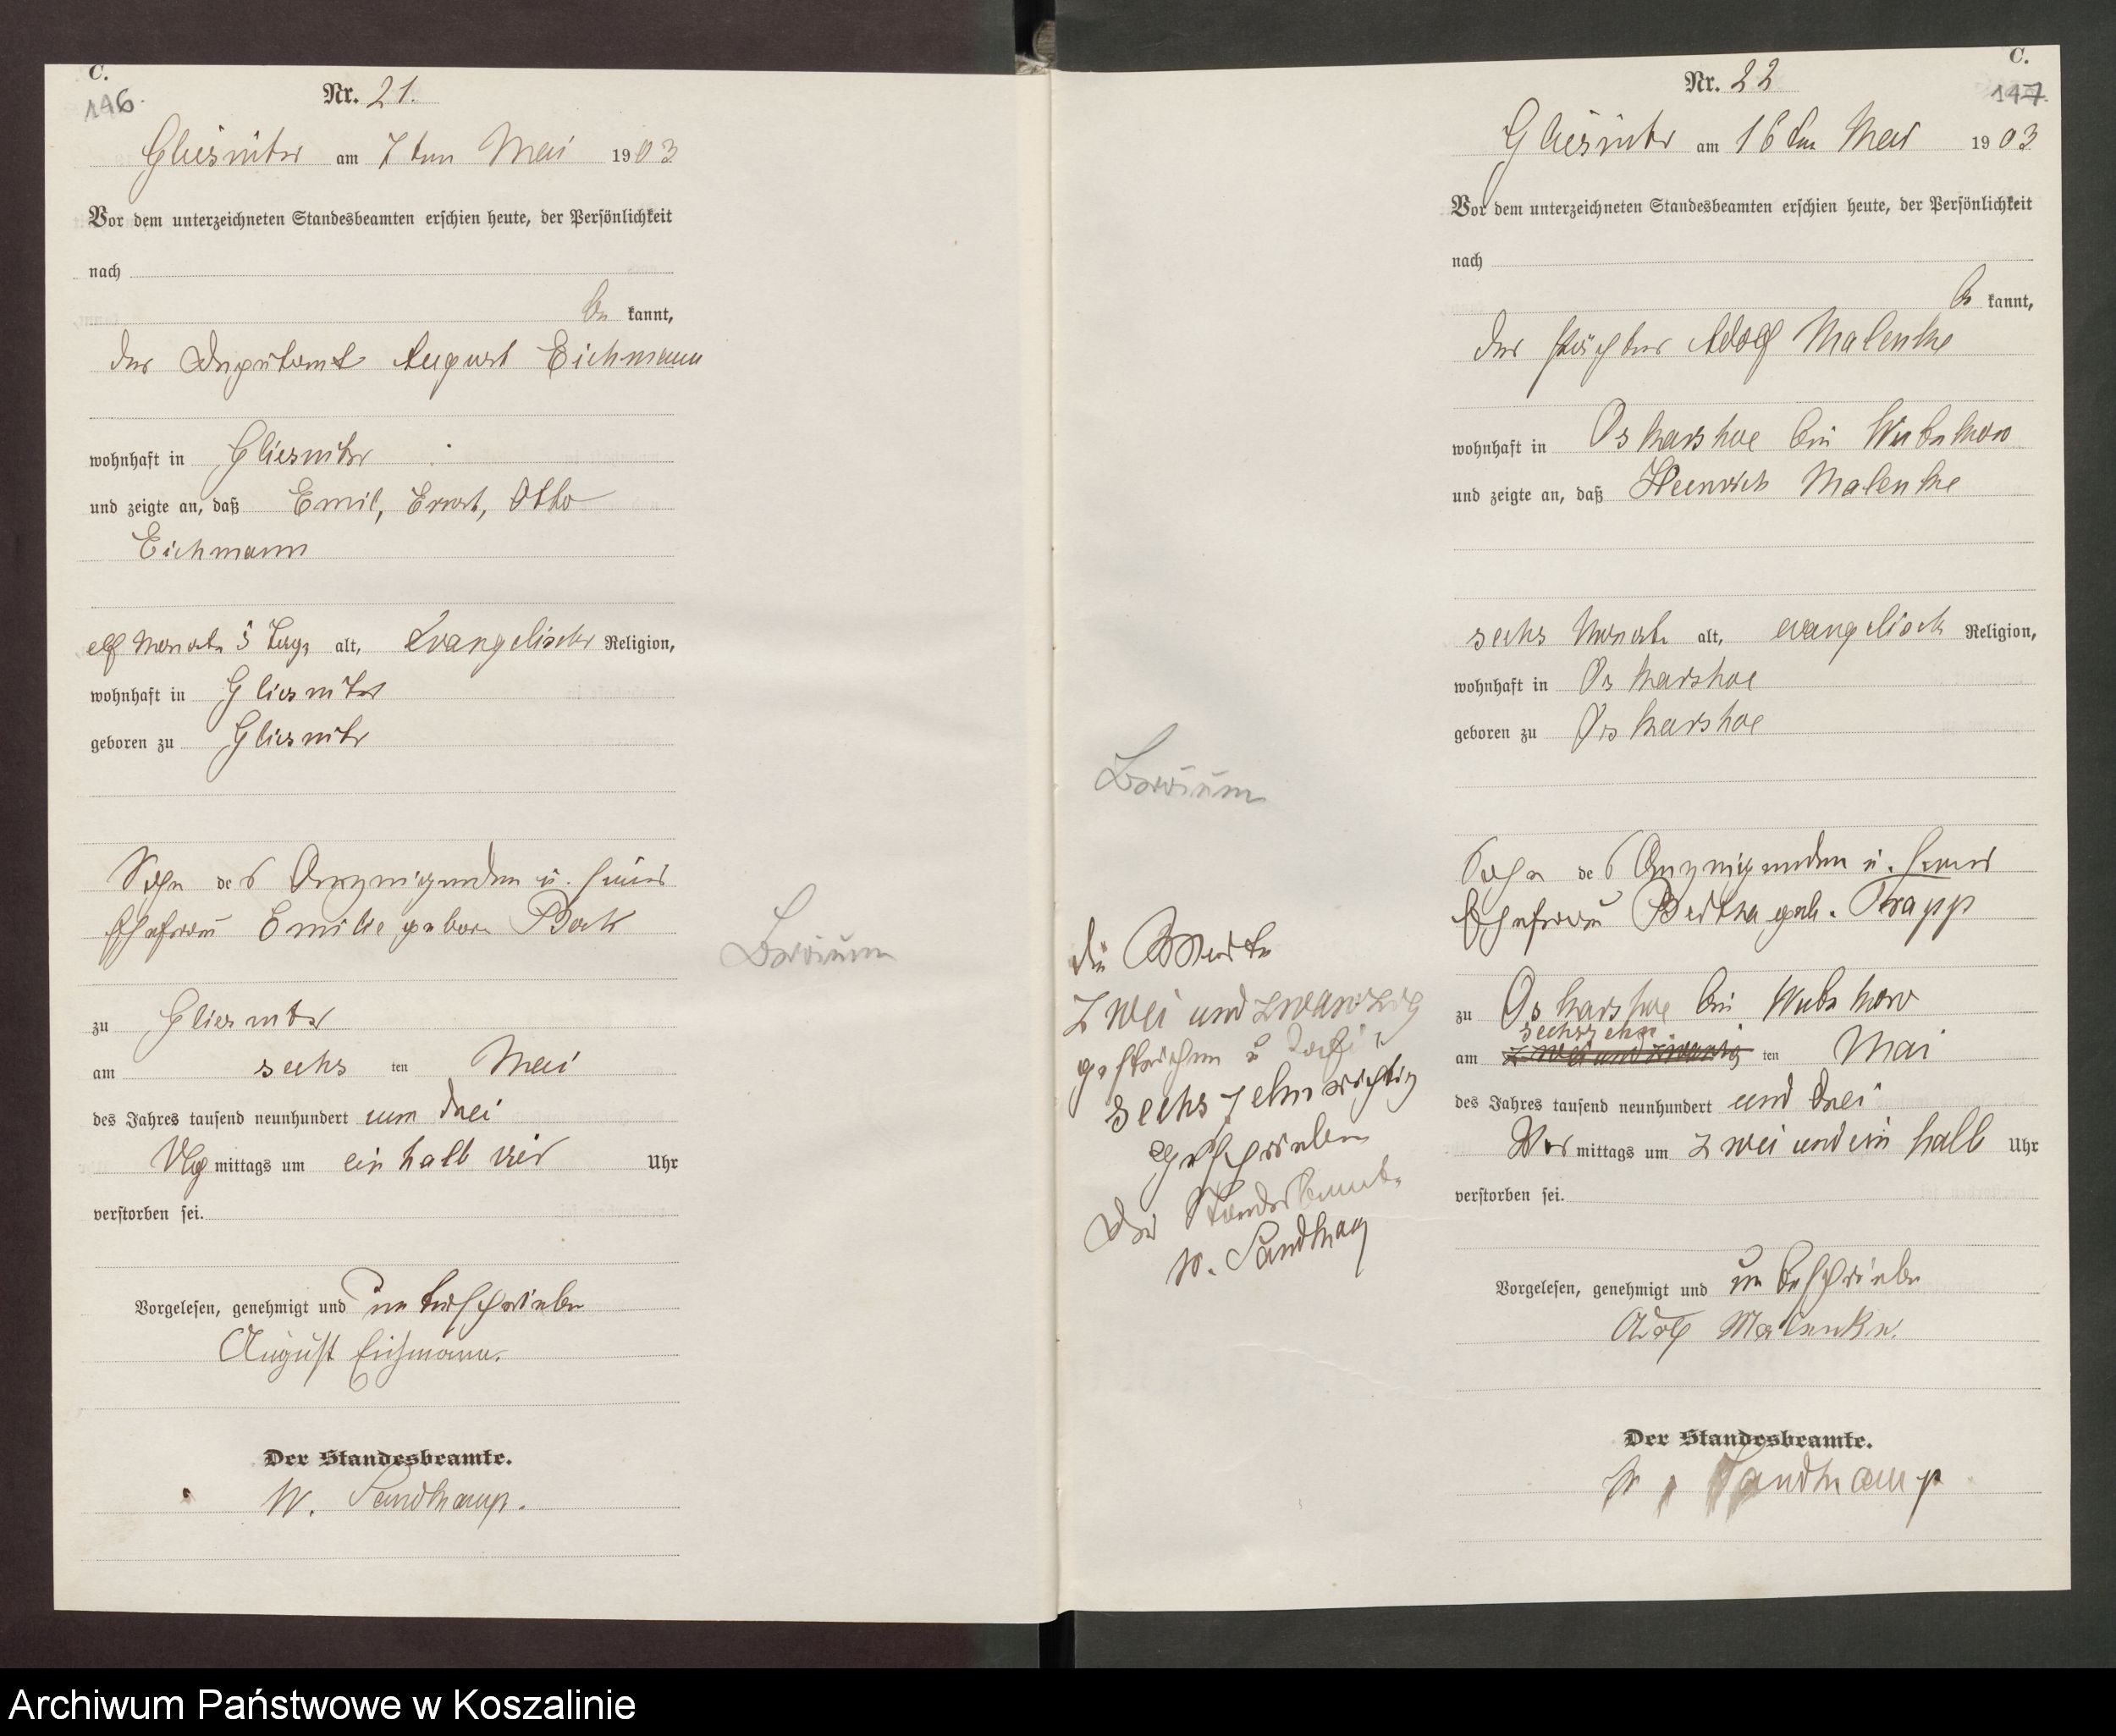 C.
146.
Nr. 21.
Gliesnitz am 7ten Mai 1903
Vor dem unterzeichneten Standesbeamten erschien heute, der Persönlichkeit
nach
be kannt,
der Deputant August Eichmann
wohnhaft in Gliesnitz
und zeigte an, daß Emil, Ernst, Otto
Eichmann
elf Monate 5 Tage alt, Evangelischer Religion,
wohnhaft in Gliesnitz
geboren zu Gliesnitz
Sohn des Anzeigenden u. seiner
Ehefrau Emilie geboren Bock
zu Gliesnitz
am sechs ten Mai
des Jahres tausend neunhundert und drei
mittags um ein halb vier Uhr
verstorben sei.
Vorgelesen, genehmigt und unterschrieben
August Eichmann.
Der Standesbeamte.
W. Sandkamp.
C.
147.
Nr. 22
Gliesnitz am 16ten Mai 1903
Vor dem unterzeichneten Standesbeamten erschien heute, der Persönlichkeit
nach
be kannt,
der Pächter Adolf Malenke
wohnhaft in Oskarshoe bei
und zeigte an, daß Heinrich Malenke
sechs Monate alt, evangelisch Religion,
wohnhaft in Oskarshoe
geboren zu Oskarshoe
Sohn des Anzeigenden u. seiner
Ehefrau Bertha geb. Trapp
zu Oskarshoe bei
sechszehn
am zwei und zwanzig ten Mai
des Jahres tausend neunhundert und drei
Vor mittags um zwei und ein halb Uhr
verstorben sei.
Vorgelesen, genehmigt und unterschrieben
Adolf Malenke.
Der Standesbeamte.
W. Sandkamp
die Worte
zwei und zwanzig
gestrichen u dafür
sechszehn richtig
geschrieben
Der Standesbeamte
W. Sandkamp
Archiwum Państwowe w Koszalinie